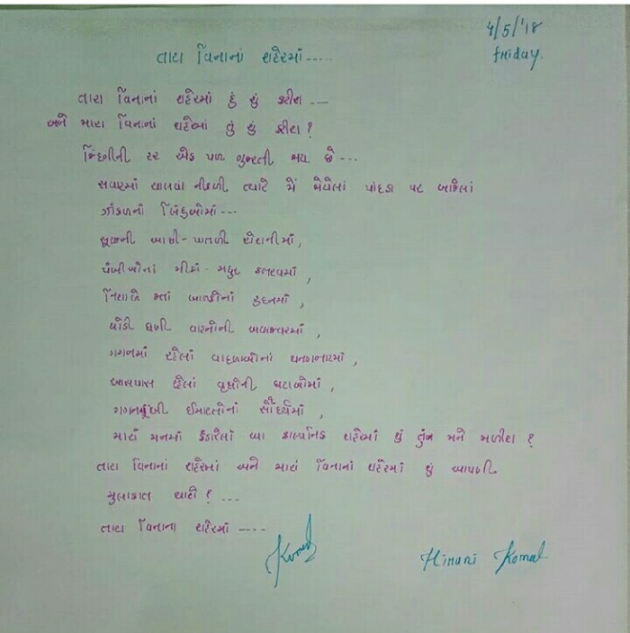 4/5/'18
Friday.
તારા વિનાનાં શહેરમાં.....
તારા વિનાનાં શહેરમાં હું શું કરીશ ...
અને મારા વિનાનાં શહેરમાં તું શું કરીશ ?
જિંદગીની દર એક પળ ગુજરતી જાય છે...
સવારમાં ચાલવા નીકળી ત્યારે મેં જોયેલાં પાંદડા પર બાઝેલાં
ઝાકળનાં બિંદુઓમાં...
સૂરજની આછી-પાતળી રોશનીમાં,
પંખીઓનાં મીઠાં-મધુર કલરવમાં,
નિશાળે જતાં બાળકોનાં
થોડી ઘણી વાહનોની અવરજવરમાં,
ગગનમાં રહેલાં વાદળાઓનાં
આસપાસ રહેલાં વૃક્ષોની ઘટાઓમાં,
ગગનચુંબી ઈમારતોનાં સૌંદર્યમાં,
મારાં મનમાં કંડારેલાં આ કાલ્પનિક શહેરમાં શું તું મને મળીશ ?
તારા વિનાનાં શહેરમાં અને મારાં વિનાનાં શહેરમાં શું આપણી
મુલાકાત થાશે ? ...
તારા વિનાના શહેરમાં ....
Komal
Hirani Komal